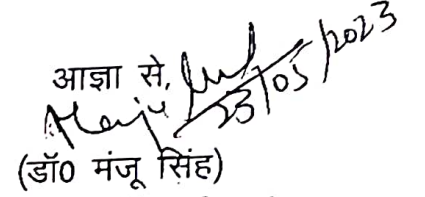 आज्ञा से,
23/05/2023
(डॉ0 मंजू सिंह)